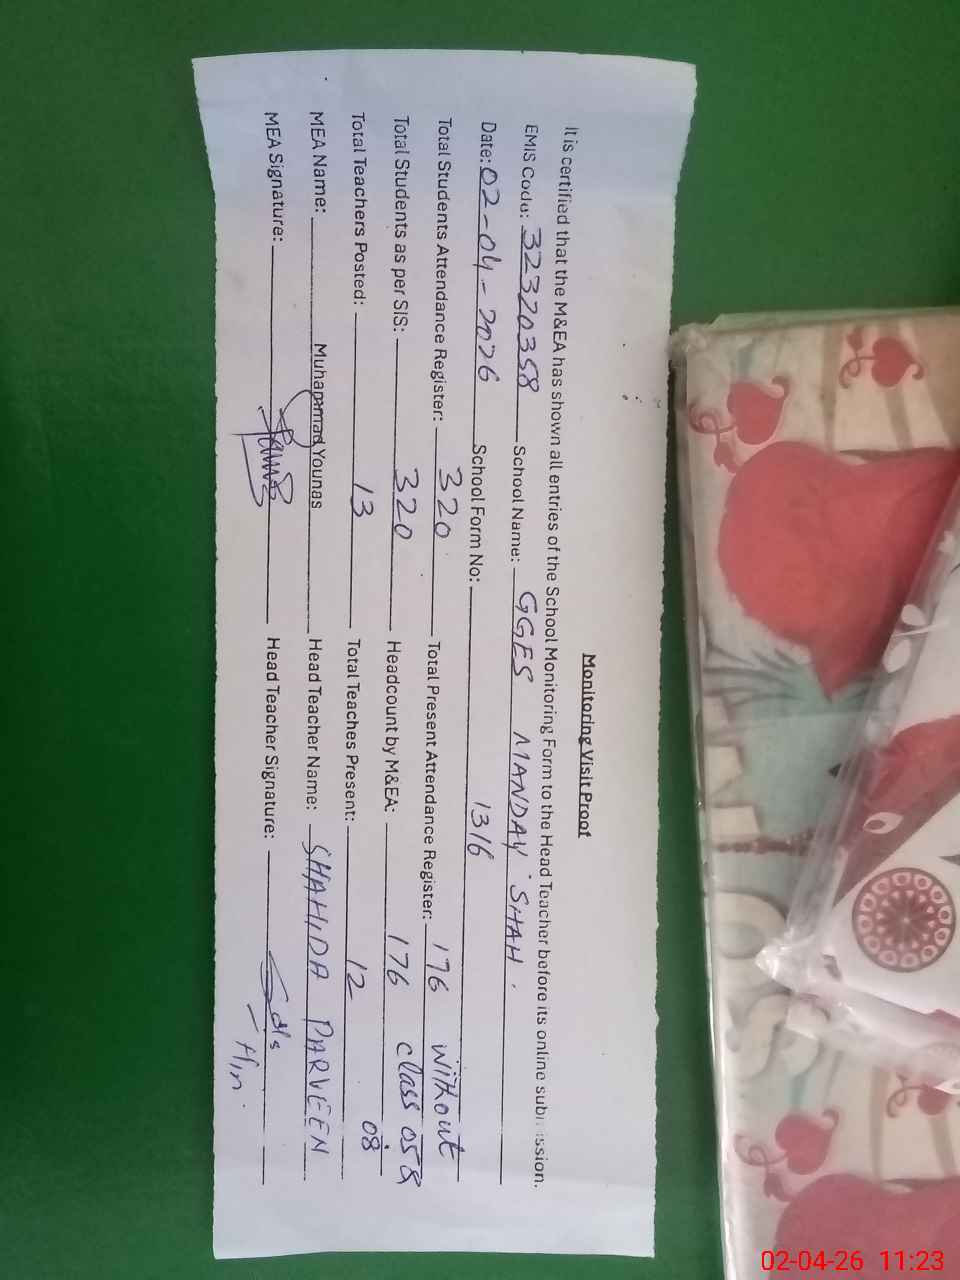 Monitoring Visit Proof
It is certified that the M&EA has shown all entries of the School Monitoring Form to the Head Teacher before its online submission.
EMIS Code: 32320358 School Name: GGES MANDAY SHAH.
Date: 02-04-2026 School Form No: 1316
Total Students Attendance Register: 320 Total Present Attendance Register: 176 without
Total Students as per SIS: 320 Headcount by M&EA: 176 class 05 &
08
Total Teachers Posted: 13 Total Teaches Present: 12
MEA Name: Muhammad Younas Head Teacher Name: SHAHIDA PARVEEN
MEA Signature: Head Teacher Signature:
02-04-26 11:23